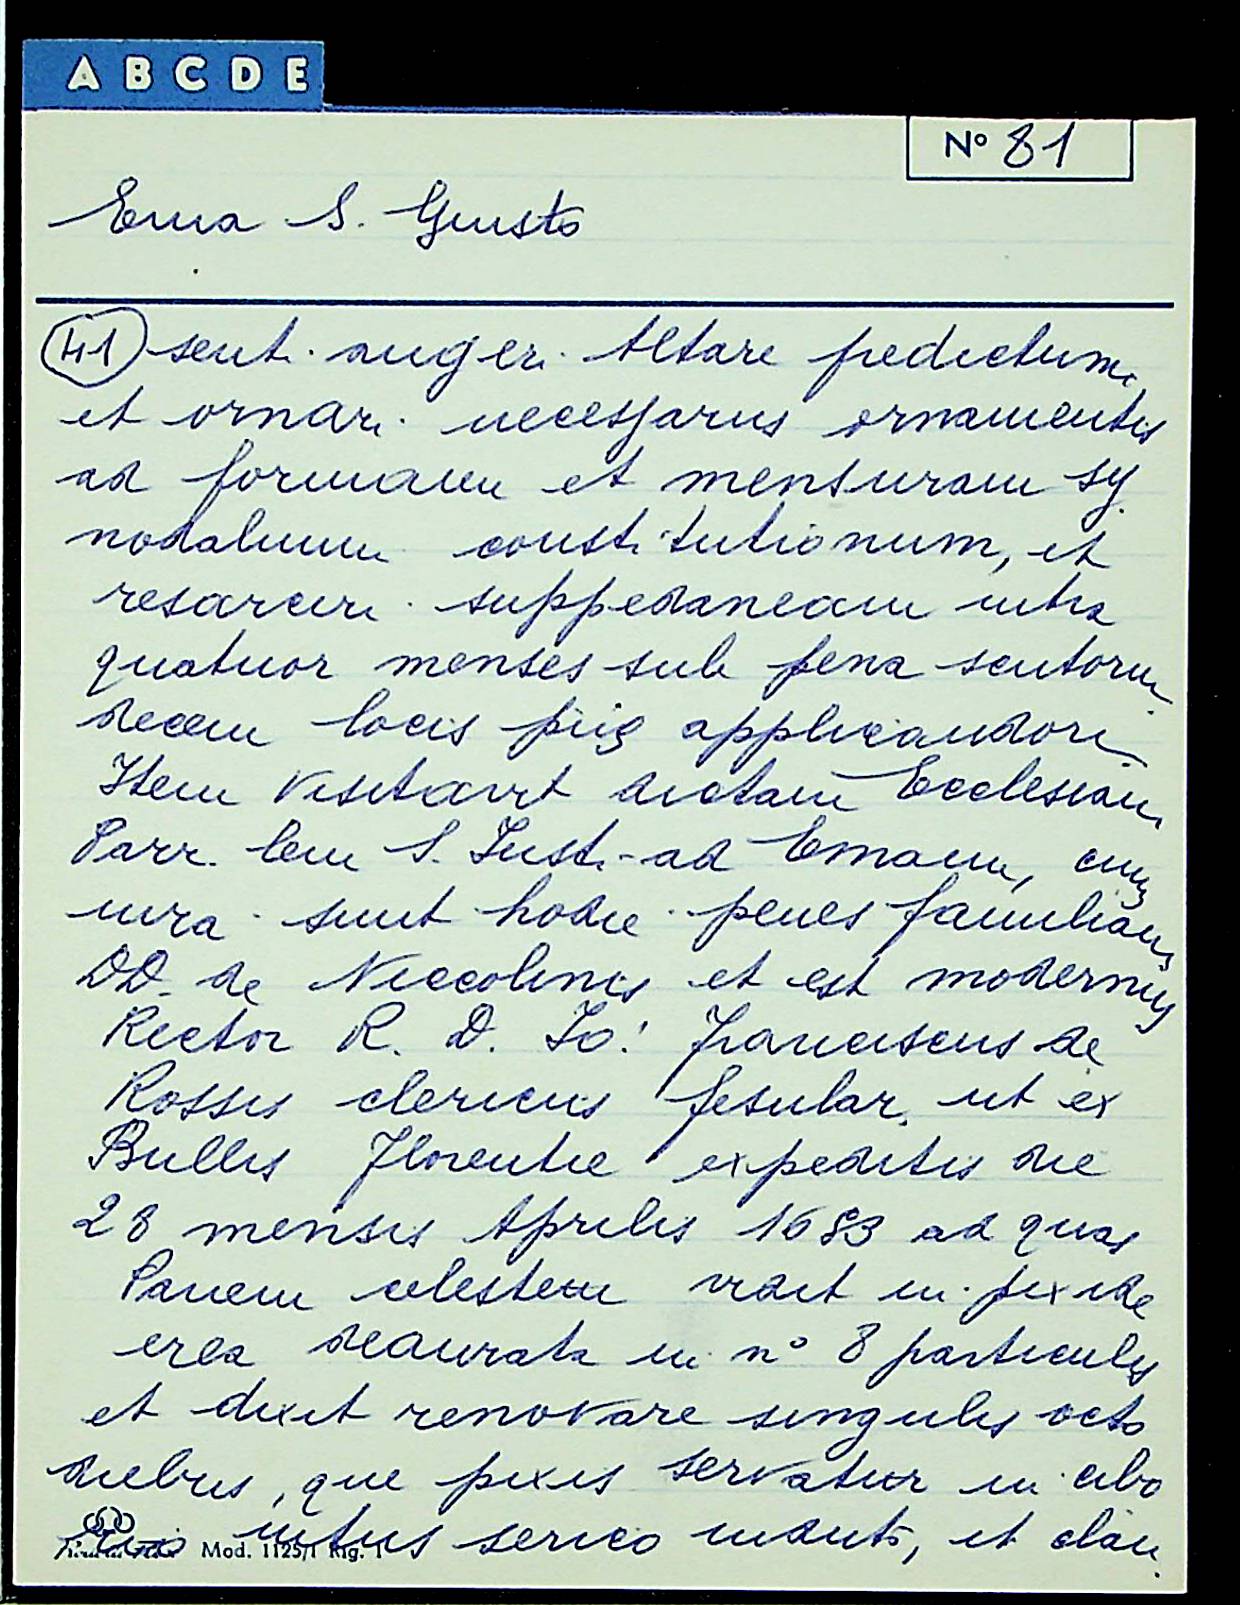 A B C D E
Nº 81
Ema S. Giusto
41 sent. augeri Altare predictum,
et ornari necessarijs ornamentis
ad formam et mensuram sy
nodalium constitutionum, et
resarciri suppedaneam intra
quatuor menses sub pena scutorum
decem locis pijs applicandori
Item visitavit dictam Ecclesiam
Parr.lem S. Justi ad Emam, cuius
iura sunt hodie penes familiam
DD. de Niccolinis et est modernus
Rector R. D. Jo: Franciscus de
Rossis clericus fesular, ut ex
Bullis Florentie expeditis die
28 mensis Aprilis 1683 ad quas
Panem celestem vidit in pixide
erea deaurata in nº 8 particulis
et dixit renovare singulis octo
diebus, que pixis servatur in cibo
intus serico induto, et clau
Mod. 1125/1 Rig. 1